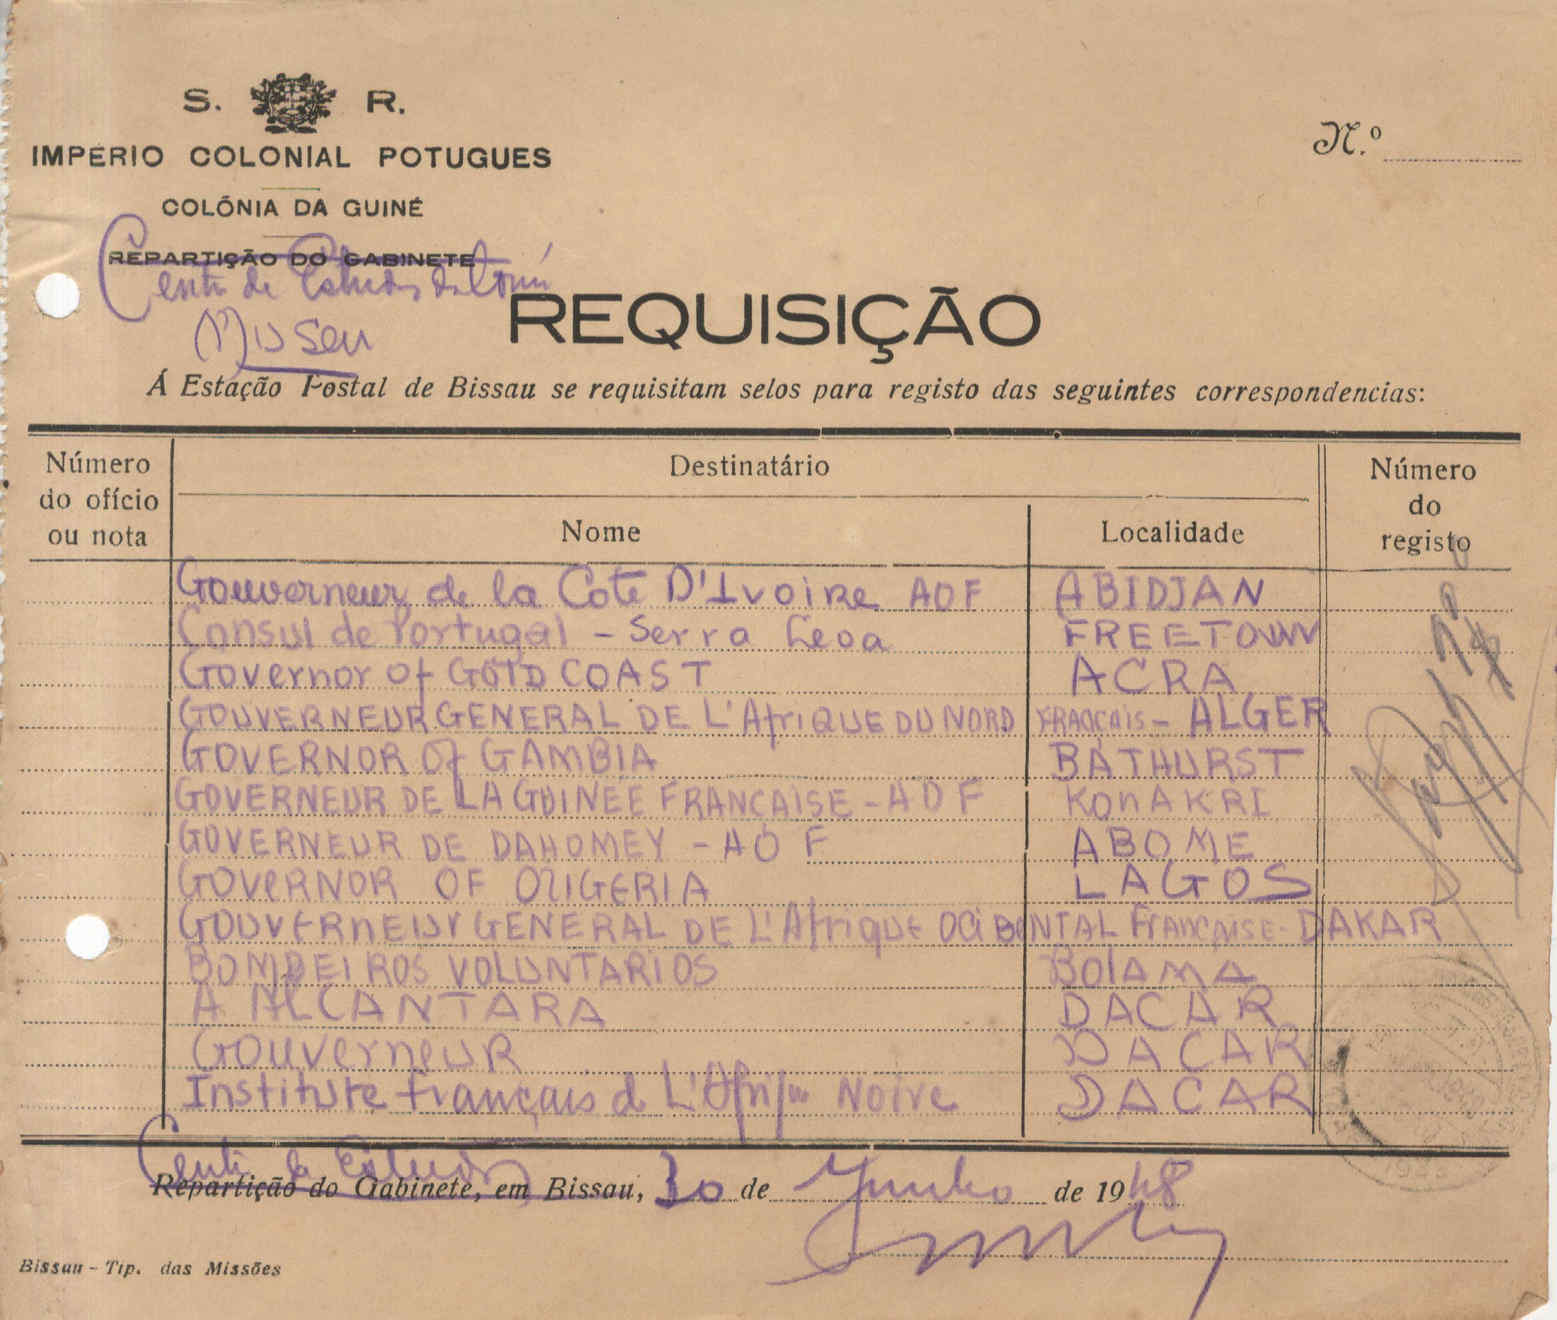 S. R.
IMPERIO COLONIAL POTUGUES
COLÓNIA DA GUINÉ
REPARTIÇÃO DO GABINETE
Centr de Estudos da
Museu
N.º
REQUISIÇÃO
Á Estação Postal de Bissau se requisitam selos para registo das seguintes correspondencias:
Número do ofício ou nota
Destinatário
Número do registo
Nome Localidade
Gouverneur de la Cote D'Ivoire AOF ABIDJAN
Consul de Portugal - Serra Leoa FREETOWN
Governor of GOLD COAST ACRA
GOUVERNEUR GENERAL DE L'AfriQUE DU NORD FRANÇAIS - ALGER
GOVERNOR Of GAMBIA BATHURST
GOVERNEUR DE LA GUINEE FRANÇAISE - AOF KONAKRI
GOVERNEUR DE DAHOMEY - AOF ABOME
GOVERNOR OF NIGERIA LAGOS
GOUVERNEUr GENERAL DE L'Afrique OCIDENTAL FrANÇAISE - DAKAR
BOMBEIROS VOLUNTARIOS BOlAMA
A ALCANTARA DACAR
GOUVerneUR DACAR
Institute français d L'Afrique Noire DACAR
Centr de Estudos
Repartição do Gabinete, em Bissau, 30 de Junho de 1948
Bissau - Tip. das Missões